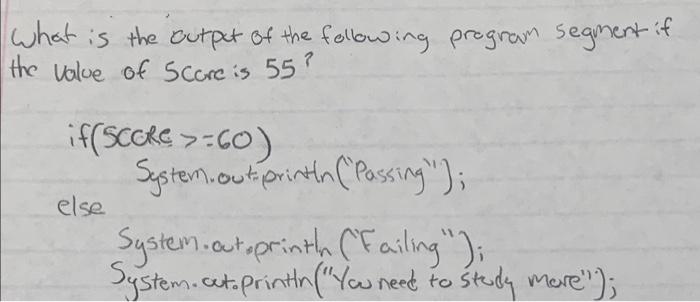 What is the output of the following program segment if
the value of Score is 55?
if(score >=60)
System.out.println("Passing");
else
System.out.println("Failing");
System.out.println("You need to study more");